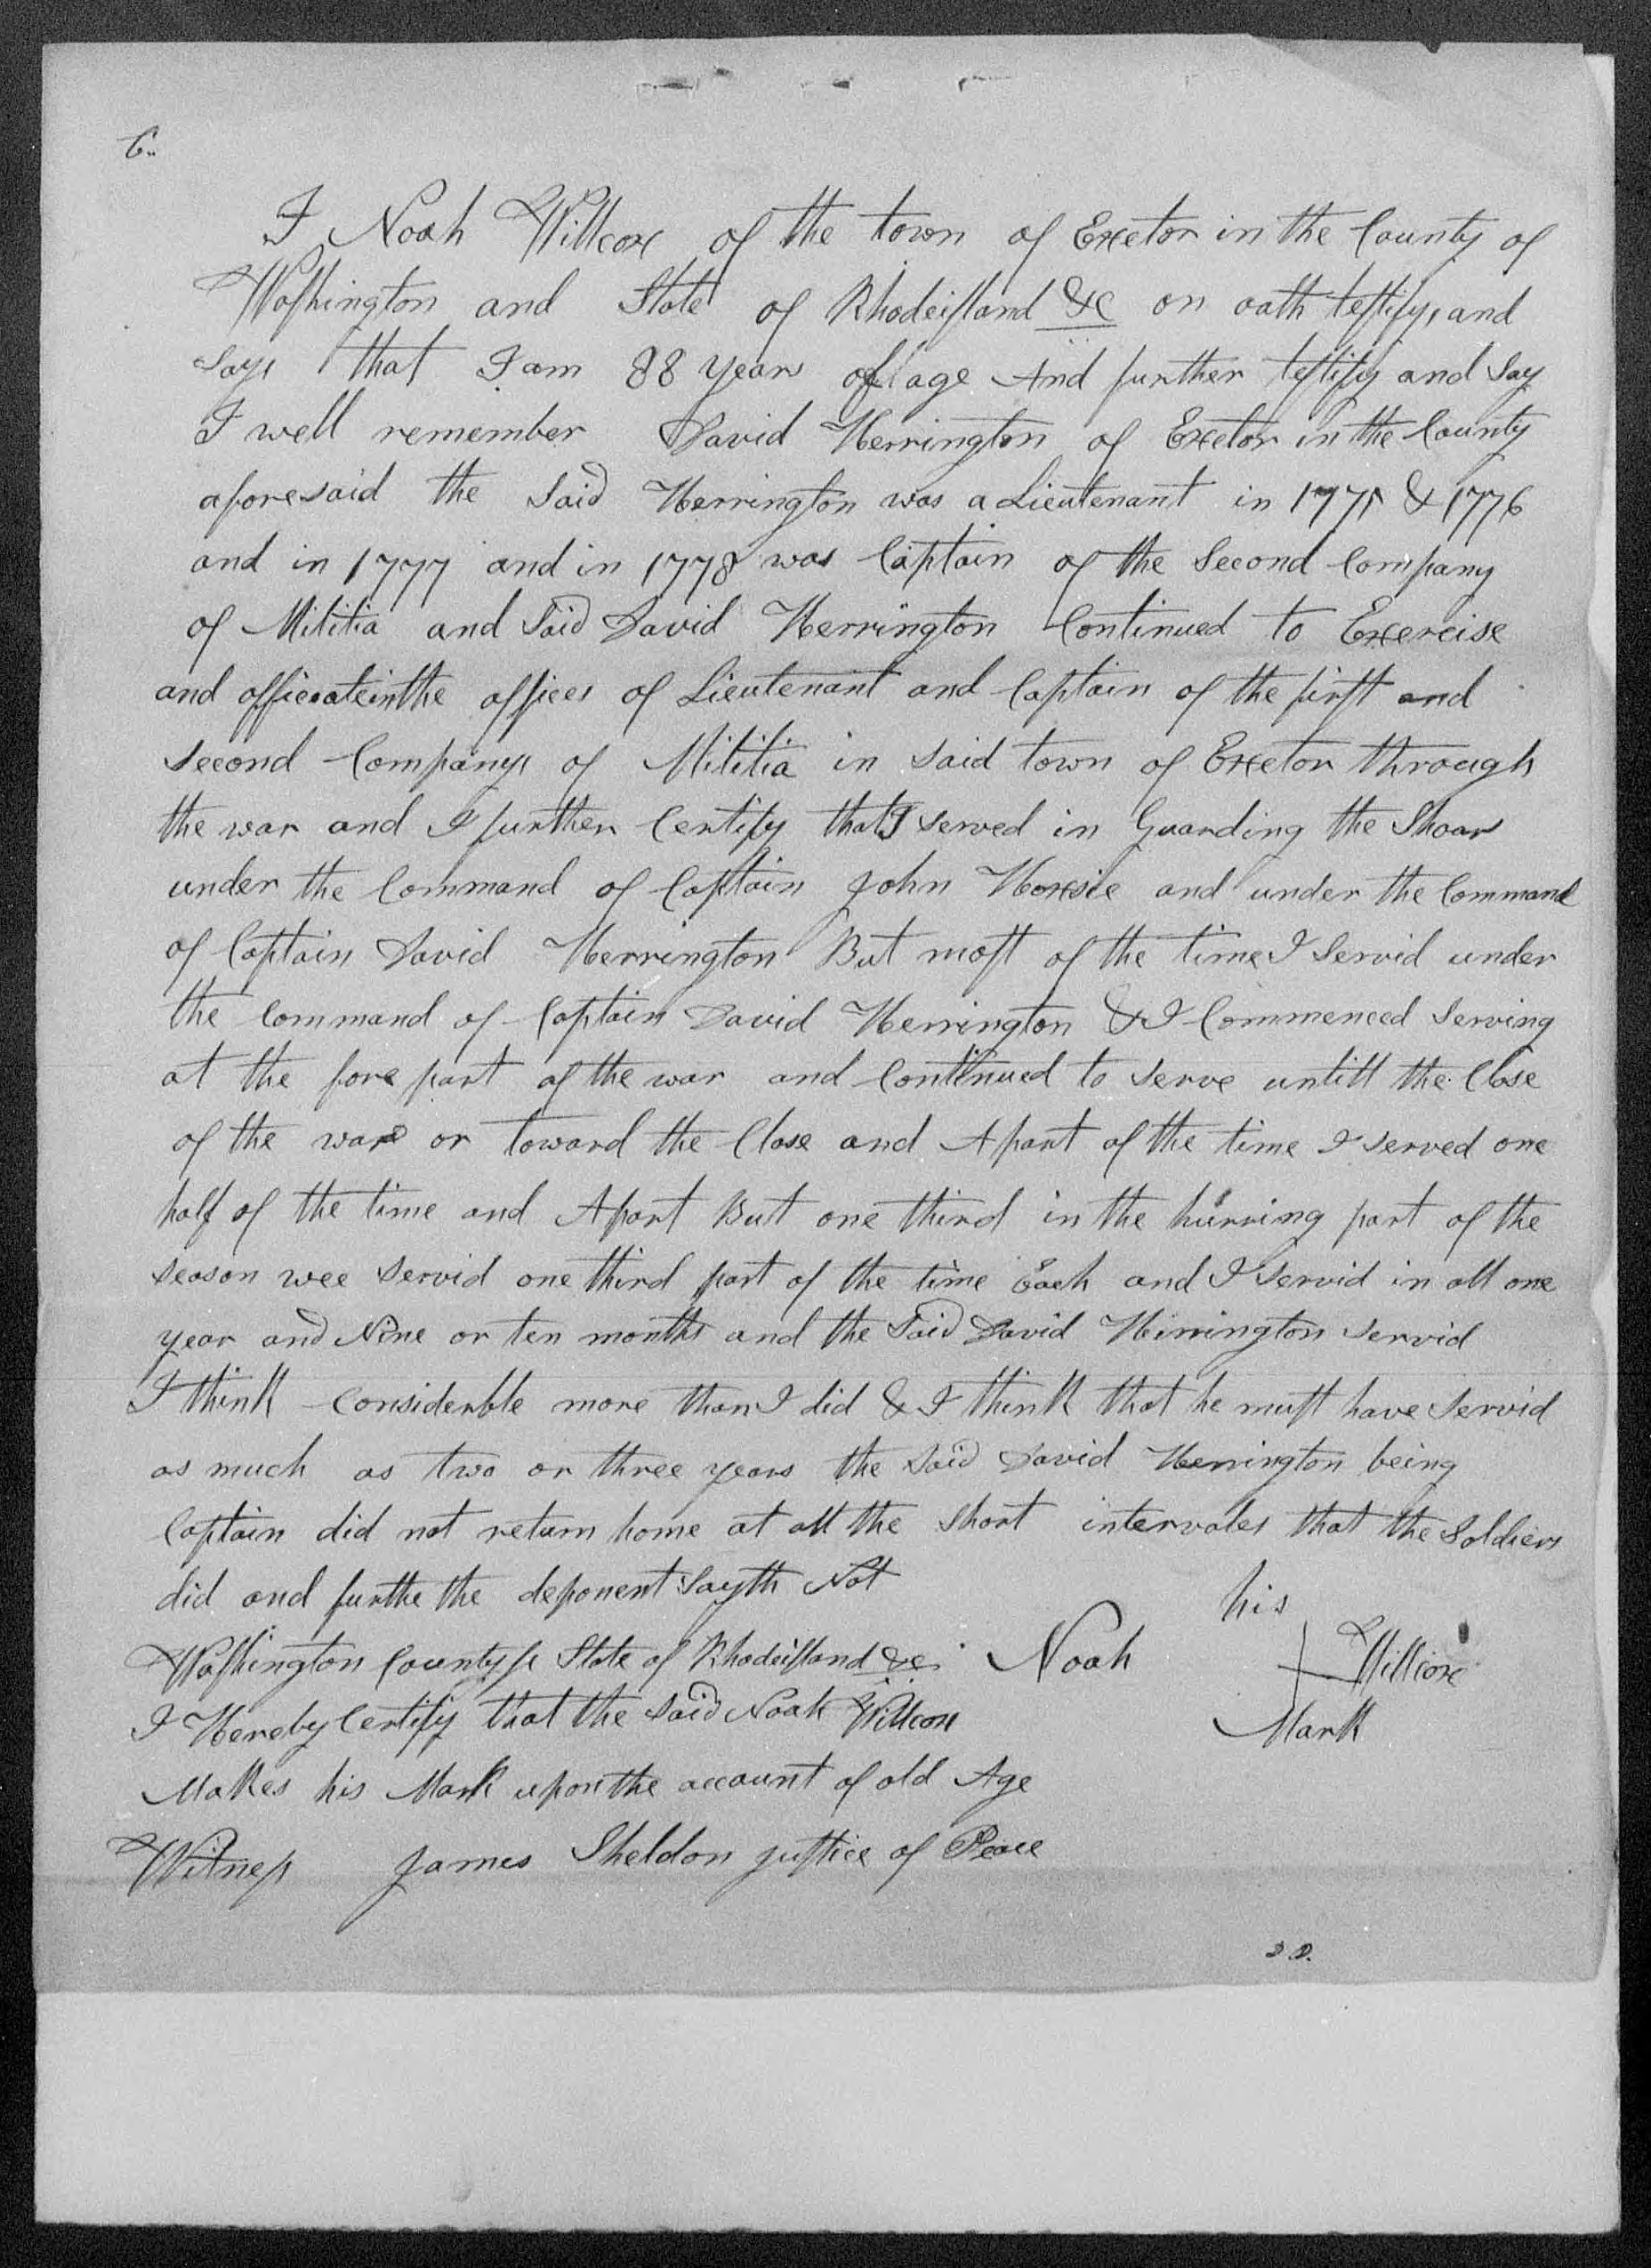 6..
I Noah Willcox of the town of Exetor in the County of
Washington and State of Rhodeisland &C on oath testifys and
says that I am 88 years of age And further testify and Say
I well remember David Herrington of Exetor in the County
aforesaid the Said Herrington was a Lieutenant in 1775 & 1776
and in 1777 and in 1778 was Captain of the Second Company
of Militia and Said David Herrington Continued to Exercise
and officeate in the offices of Lieutenant and Captain of the first and
second Companys of Militia in said town of Exetor through
the war and I further Certify that I served in Guarding the Shoars
under the Command of Captain John Hoxsie and under the Command
of Captain David Herrington But most of the time I Servid under
the Command of Captain David Herrington & I Commenced Serving
at the fore part of the war and Continued to serve untill the Close
of the ware or toward the Close and A part of the time I served one
half of the time and A part But one third in the hurring part of the
season wee servid one third part of the time Each and I Servid in all one
year and Nine or ten months and the Said David Herrington servid
I think Considerble more than I did & I think that he must have Servid
as much as two or three years the Said David Herrington being
Captain did not return home at all the Short intervales that the Soldiers
did and furthe the deponent Sayth Not
his
Washington County ss State of Rhodeisland &c. Noah + Willcox
I Hereby Certify that the Said Noah Willcox
Mark
Makes his Mark upon the account of old Age
Witness James Sheldon justice of Peace